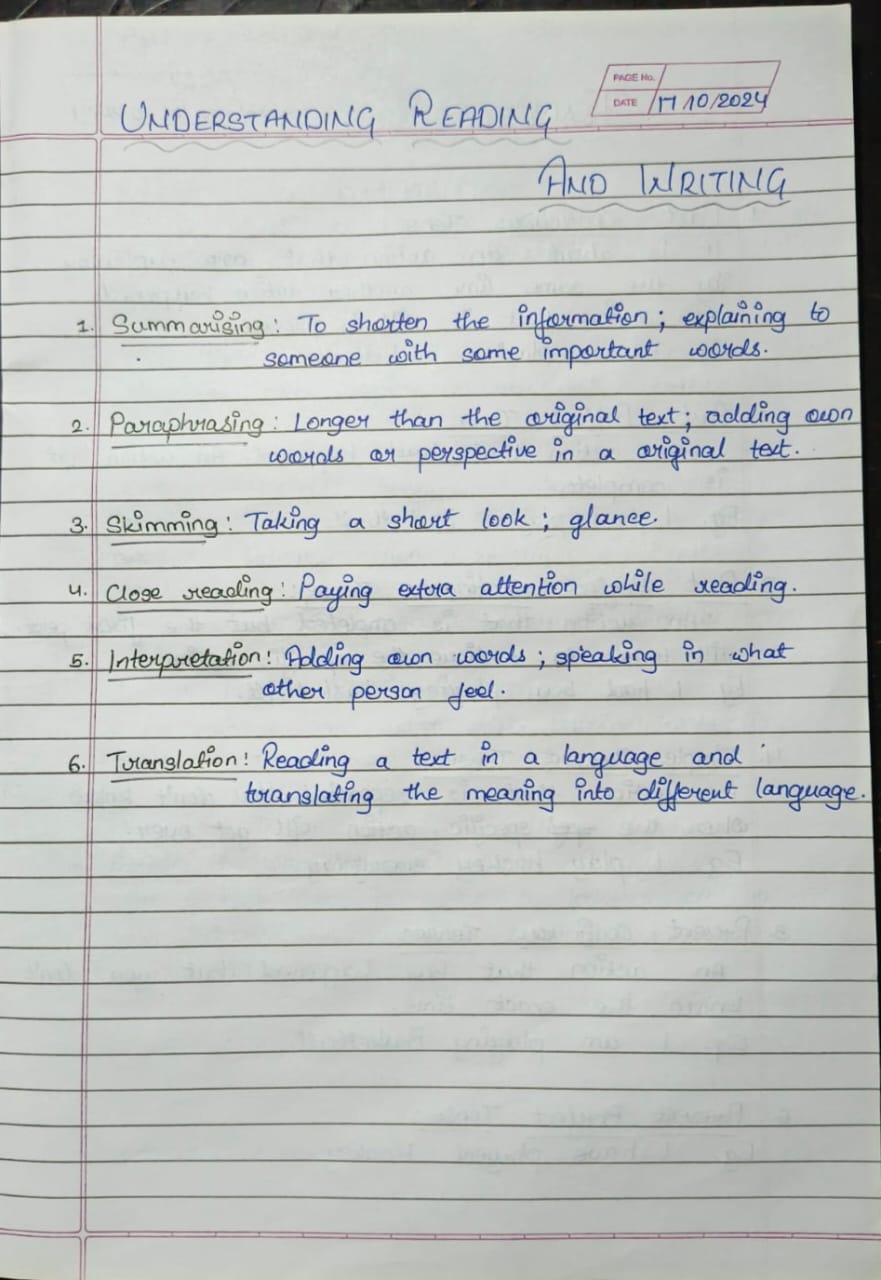 PAGE No.
DATE 17/10/2024
UNDERSTANDING READING
AND WRITING
1. Summarising: To shorten the information; explaining to
someone with some important words.
2. Paraphrasing: Longer than the original text; adding own
words or perspective in a original text.
3. Skimming: Taking a short look; glance.
4. Close reading: Paying extra attention while reading.
5. Interpretation: Adding own words; speaking in what
other person feel.
6. Translation: Reading a text in a language and
translating the meaning into different language.